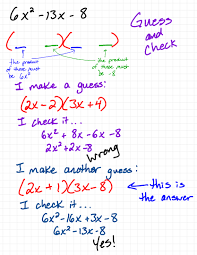 6x² - 13x - 8
Guess
and
check
( )( )
the product
of these must
be 6x²
the product
of these must
be -8
I make a guess:
(2x - 2)(3x + 4)
I check it...
6x² + 8x - 6x - 8
2x² + 2x - 8
Wrong
I make another guess:
(2x + 1)(3x - 8) ← this is
the answer
I check it...
6x² - 16x + 3x - 8
6x² - 13x - 8
Yes!